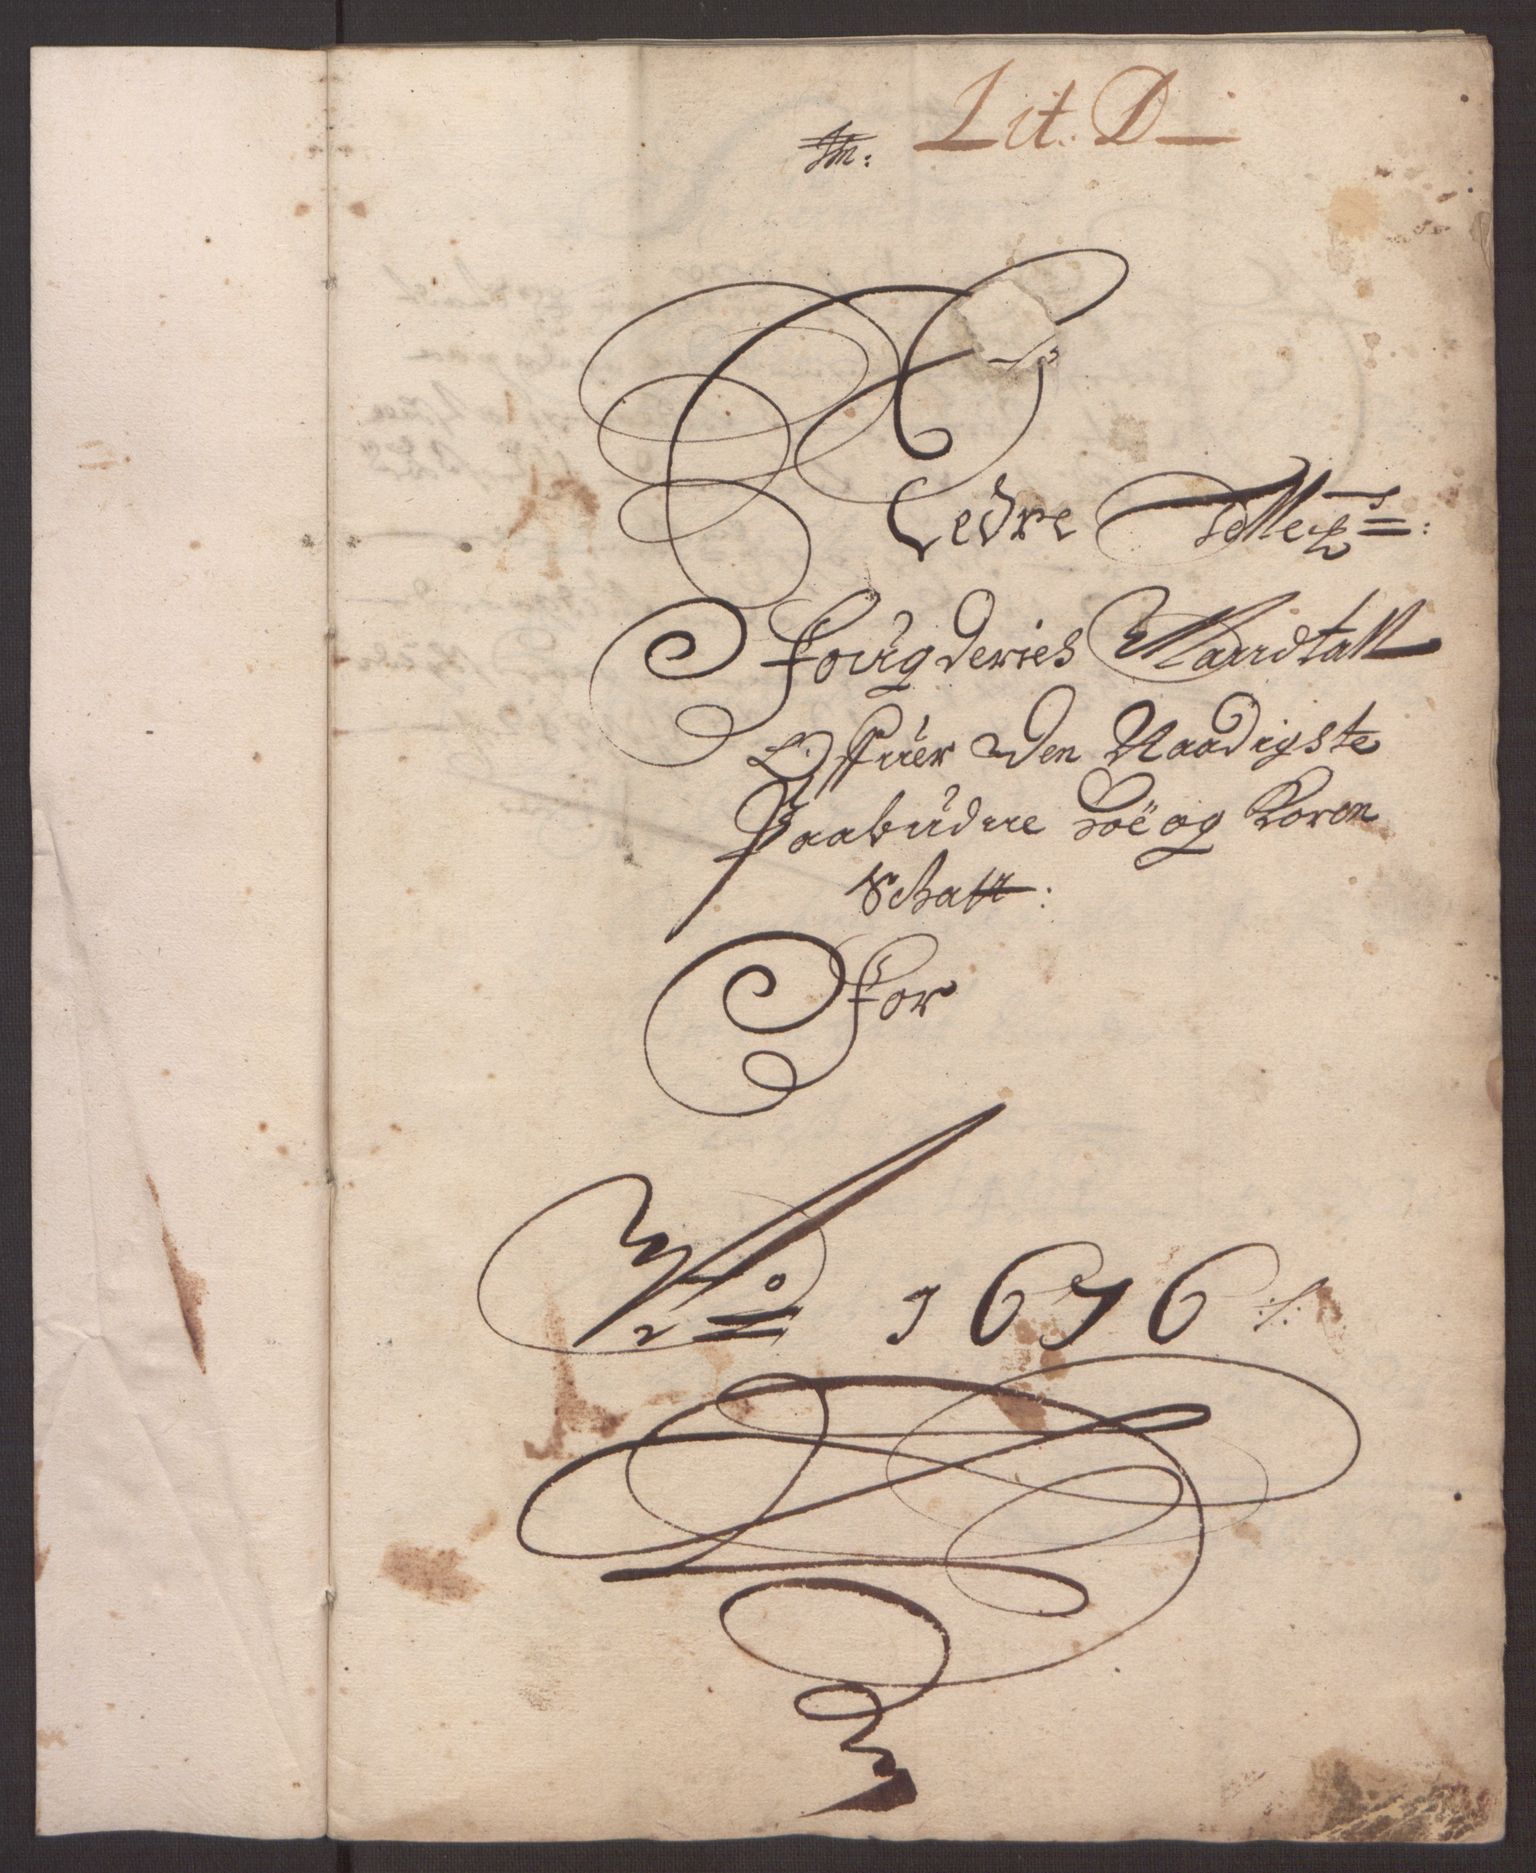 Lit. D
Nedre Tellem:s
Fougderies Mandtall
Offuer den Naadigste
Paabudne Koe og Koren
Schatt:
For
A:o 1676